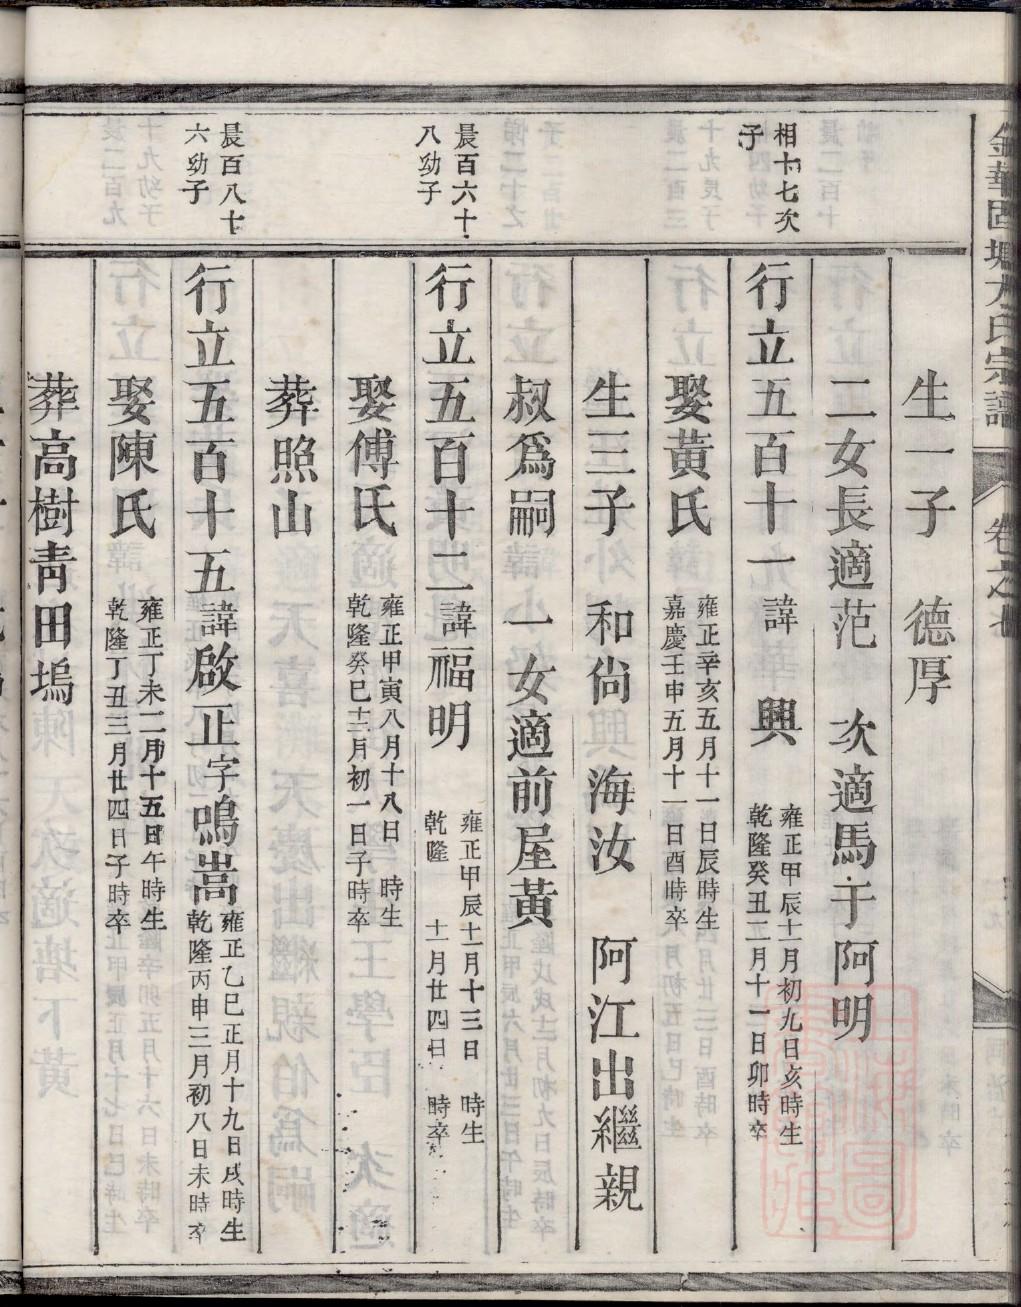 金華固塘方氏宗譜 卷之七
生一子 德厚
二女長適范 次適馬于阿明
相十七次
子
行立五百十一 諱 興 雍正甲辰十一月初九日亥時生
乾隆癸丑二月十一日卯時卒
娶黃氏 雍正辛亥五月十一日辰時生
嘉慶壬申五月十一日酉時卒
生三子 和尙 海汝 阿江出繼親
叔爲嗣 一女適前屋黃
晨百六十
八幼子
行立五百十二 諱福明 雍正甲辰十一月十三日 時生
乾隆 十一月廿四日 時卒
娶傅氏 雍正甲寅八月十八日 時生
乾隆癸巳十二月初一日子時卒
葬照山
晨百八十
六幼子
行立五百十五 諱啟正字鳴嵩 雍正乙巳正月十九日戌時生
乾隆丙申三月初八日未時卒
娶陳氏 雍正丁未二月十五日午時生
乾隆丁丑三月廿四日子時卒
葬高樹靑田塢